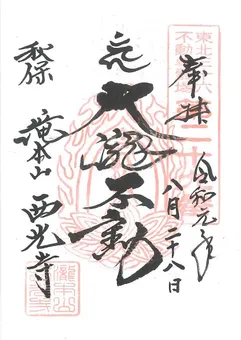 東北三十六
不動尊霊場
第二十八番
奉拝
令和元年
八月二十八日
大瀧不動
秋保
瀧本山 西光寺
瀧本山
西光寺